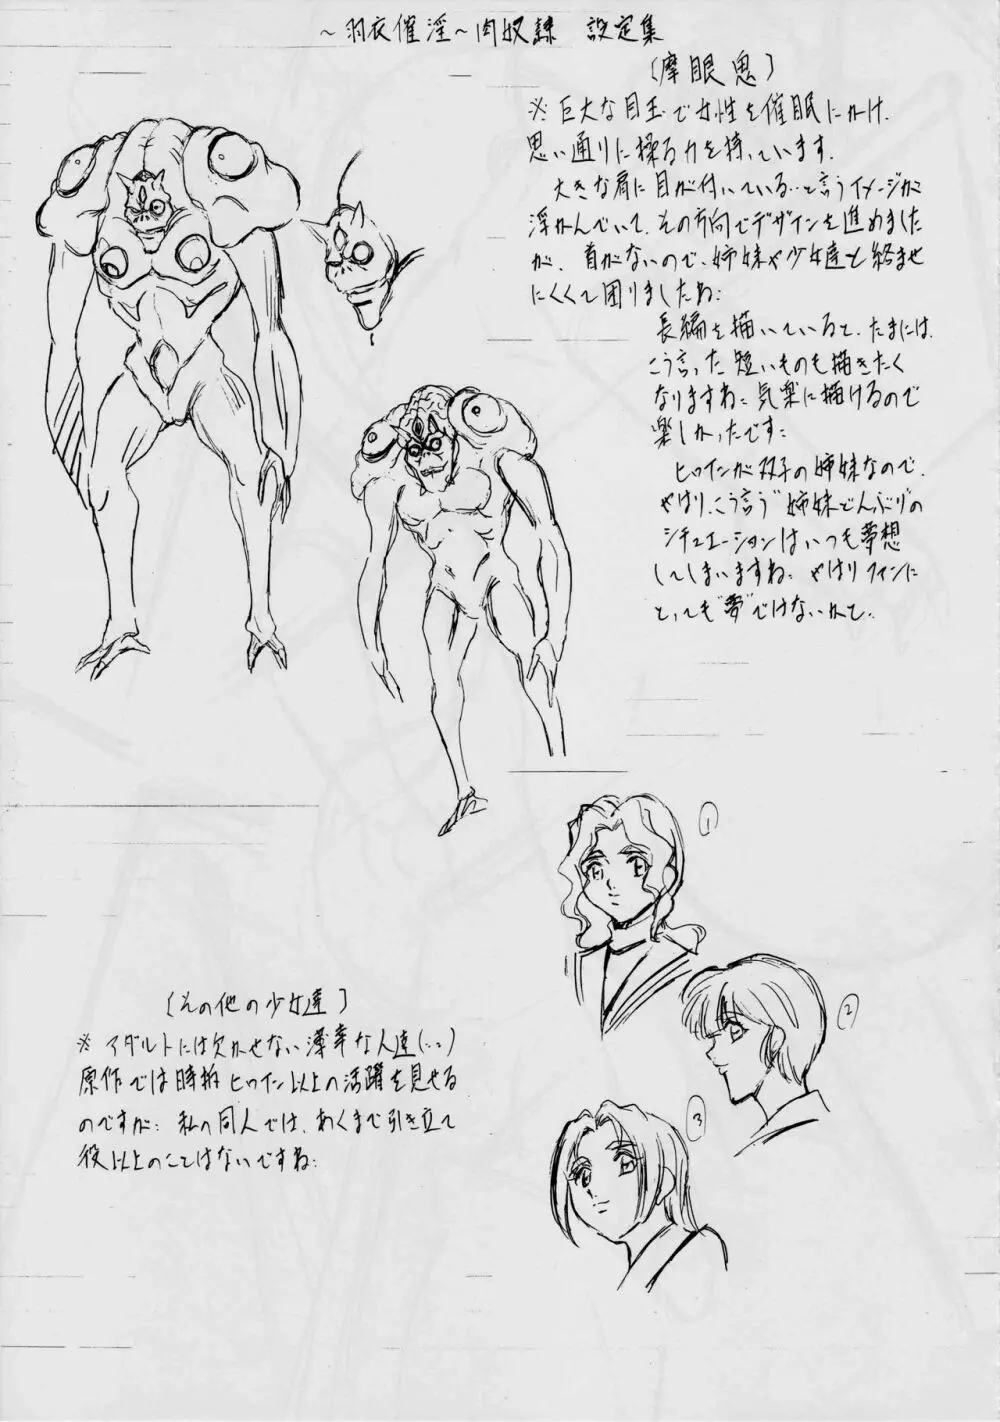 ～羽衣催淫～肉奴隷 設定集
(摩眼鬼)
※巨大な目玉で女性を催眠にかけ、
思い通りに操る力を持っています。
大きな肩に目が付いている…と言うイメージが
浮かんでいて、その方向でデザインを進めました
が、首がないので、姉妹や少女達と絡ませ
にくくて困りましたね…
長編を描いていると、たまには、
こう言った短いものも描きたく
なりますね… 気楽に描けるので
楽しかったです…
ヒロインが双子の姉妹なので、
やはり、こう言う"姉妹どんぶり"の
シチュエーションはいつも夢想
してしまいますね… やはりファンに
とっても"夢"ではないかと…
①
②
③
(その他の少女達)
※アダルトには欠かせない薄幸な人達(…)
原作では時折ヒロイン以上の活躍を見せる
のですが… 私の同人では、あくまで引き立て
役以上のことはないですね…